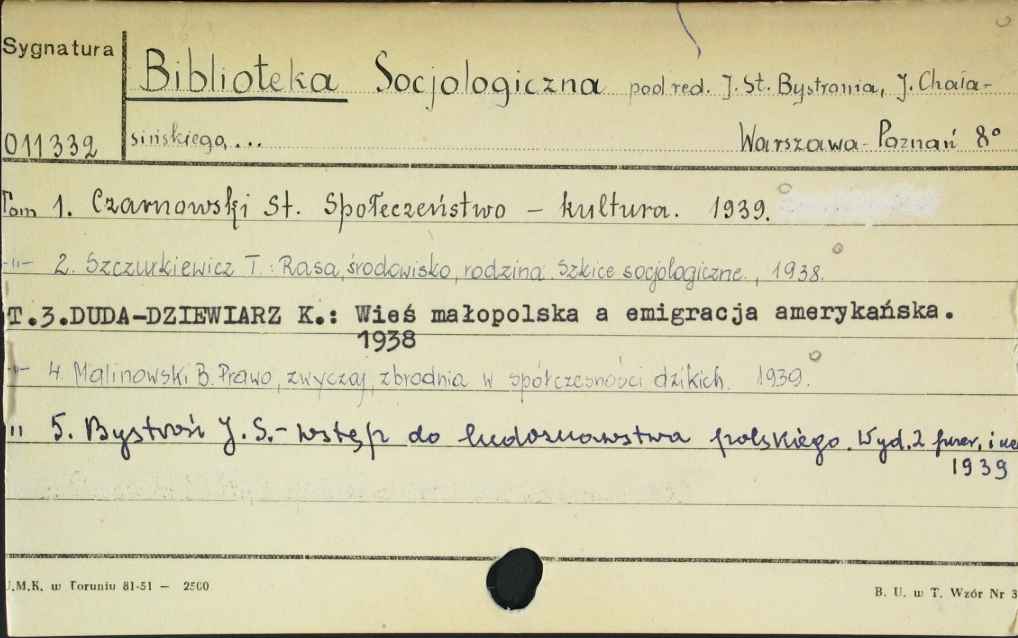 Sygnatura
Biblioteka Socjologiczna pod red. J. St. Bystronia, J. Chała-
011332 sińskiego, ... Warszawa-Poznań 8°
Tom 1. Czarnowski St. Społeczeństwo - kultura. 1939.
-"- 2. Szczurkiewicz T.: Rasa, środowisko, rodzina. Szkice socjologiczne., 1938.
T.3.DUDA-DZIEWIARZ K.: Wieś małopolska a emigracja amerykańska.
1938
-"- 4. Malinowski B. Prawo, zwyczaj, zbrodnia w spółczesności dzikich. 1939.
" 5. Bystroń J. S. - Wstęp do ludoznawstwa polskiego. Wyd. 2 przer. i
1939
U.M.K. w Toruniu 81-51 — 2500
B. U. w T. Wzór Nr 3